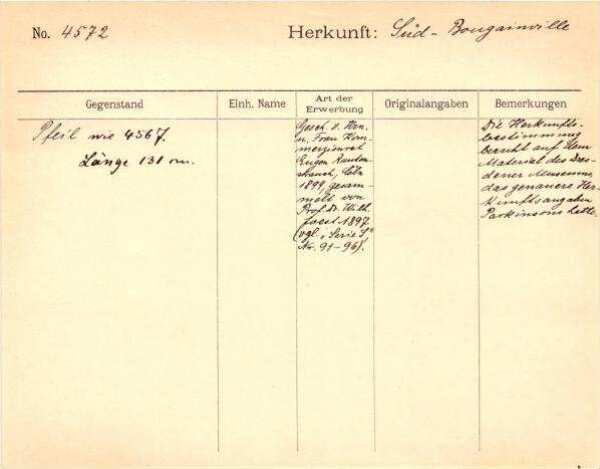 No. 4572
Herkunft: Süd-Bougainville
Gegenstand
Einh. Name
Art der
Erwerbung
Originalangaben
Bemerkungen
Pfeil wie 4567.
Länge 131 cm.
Gesch. v. Hrn.
u. Frau Kom-
merzienrat
Eugen Rauten-
strauch, Cöln
1899, gesam-
melt von
Prof. Dr. Wilh.
Joest 1897
(vgl. "Serie S"
Nr. 91-96).
Die Herkunfts-
bestimmung
beruht auf dem
Material des Dres-
dener Museums
das genauere Her-
kunftsangaben
Parkinsons hatte.